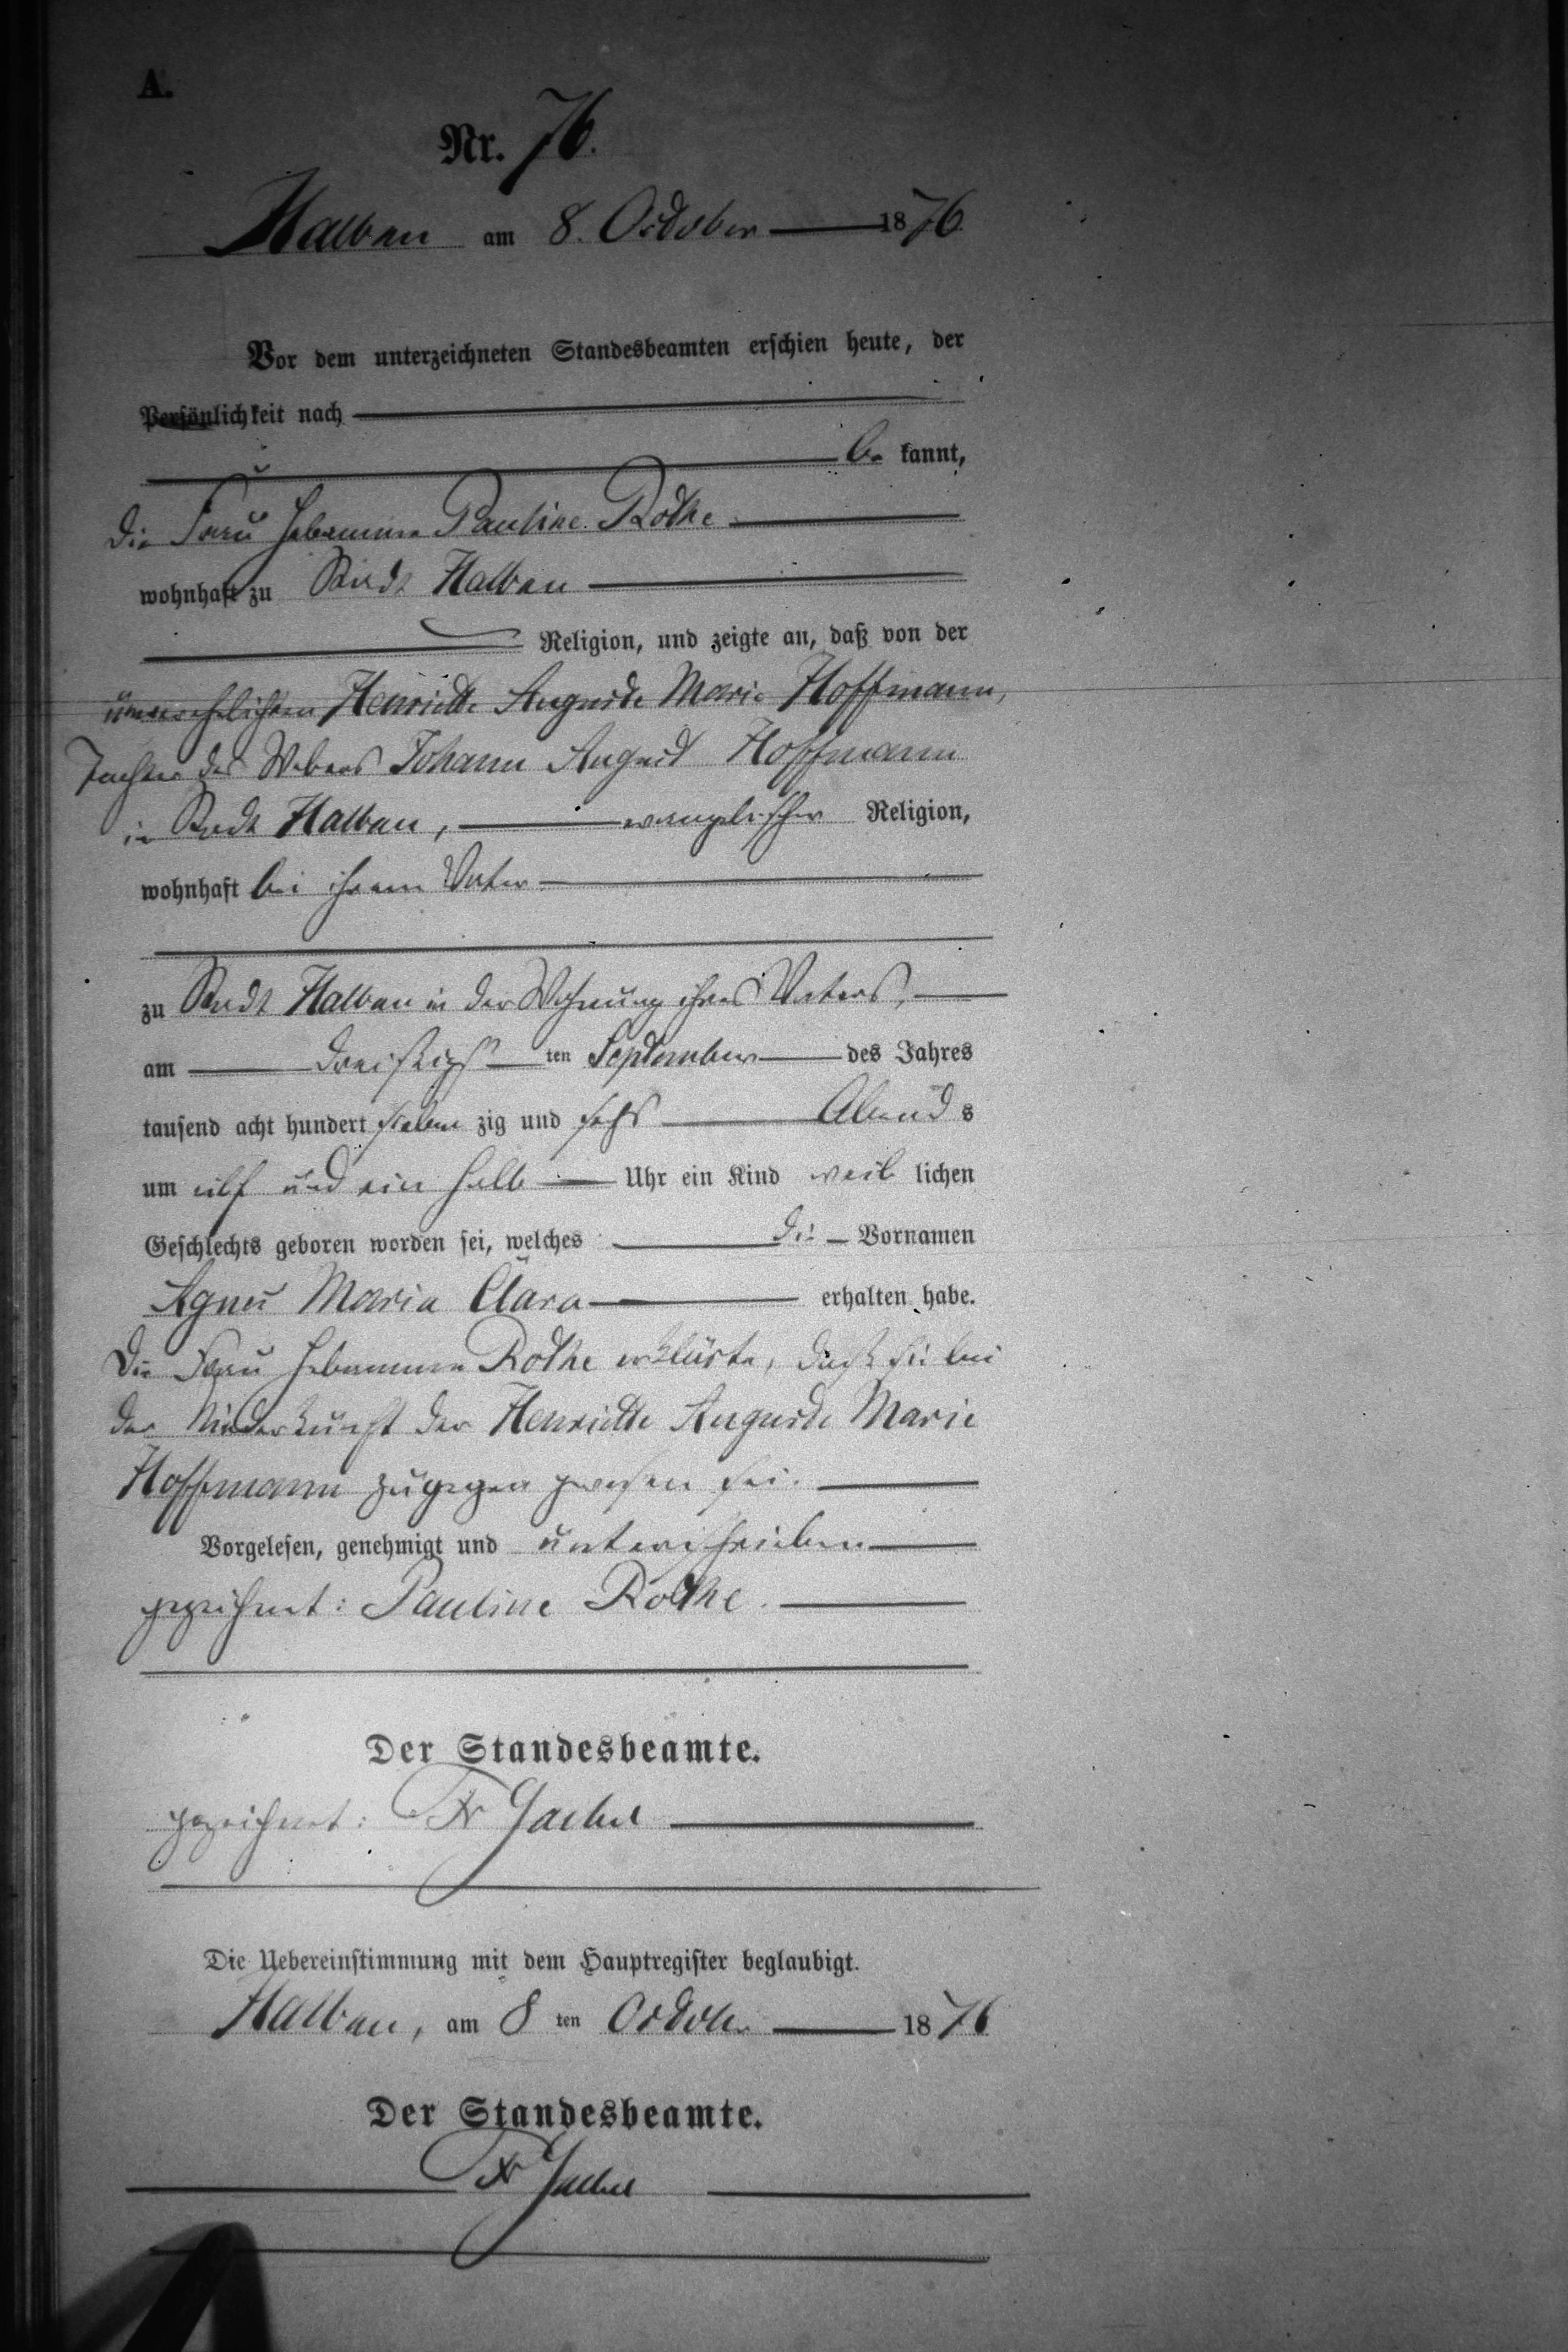 A.
Nr. 76.
Halbau am 8. October 1876
Vor dem unterzeichneten Standesbeamten erschien heute, der
Persönlichkeit nach
be kannt,
die Frau Hebamme Pauline Rothe
wohnhaft zu Stadt Halbau
Religion, und zeigte an, daß von der
unverehelichten Henriette Auguste Marie Hoffmann,
Tochter des Webers Johann August Hoffmann
in Stadt Halbau, evangelischer Religion,
wohnhaft bei ihrem Vater
zu Stadt Halbau in der Wohnung ihres Vaters,
am dreißigs ten September des Jahres
tausend acht hundert sieben zig und sechs Abend s
um eilf und ein halb Uhr ein Kind weib lichen
Geschlechts geboren worden sei, welches die Vornamen
Agnes Maria Clara erhalten habe.
Die Frau Hebamme Rothe erklärte, daß sie bei
der Niederkunft der Henriette Auguste Marie
Hoffmann zugegen gewesen sei.
Vorgelesen, genehmigt und unterschrieben
gezeichnet: Pauline Rothe.
Der Standesbeamte.
gezeichnet: Fr
Die Uebereinstimmung mit dem Hauptregister beglaubigt.
Halbau, am 8 ten October 1876
Der Standesbeamte.
Fr